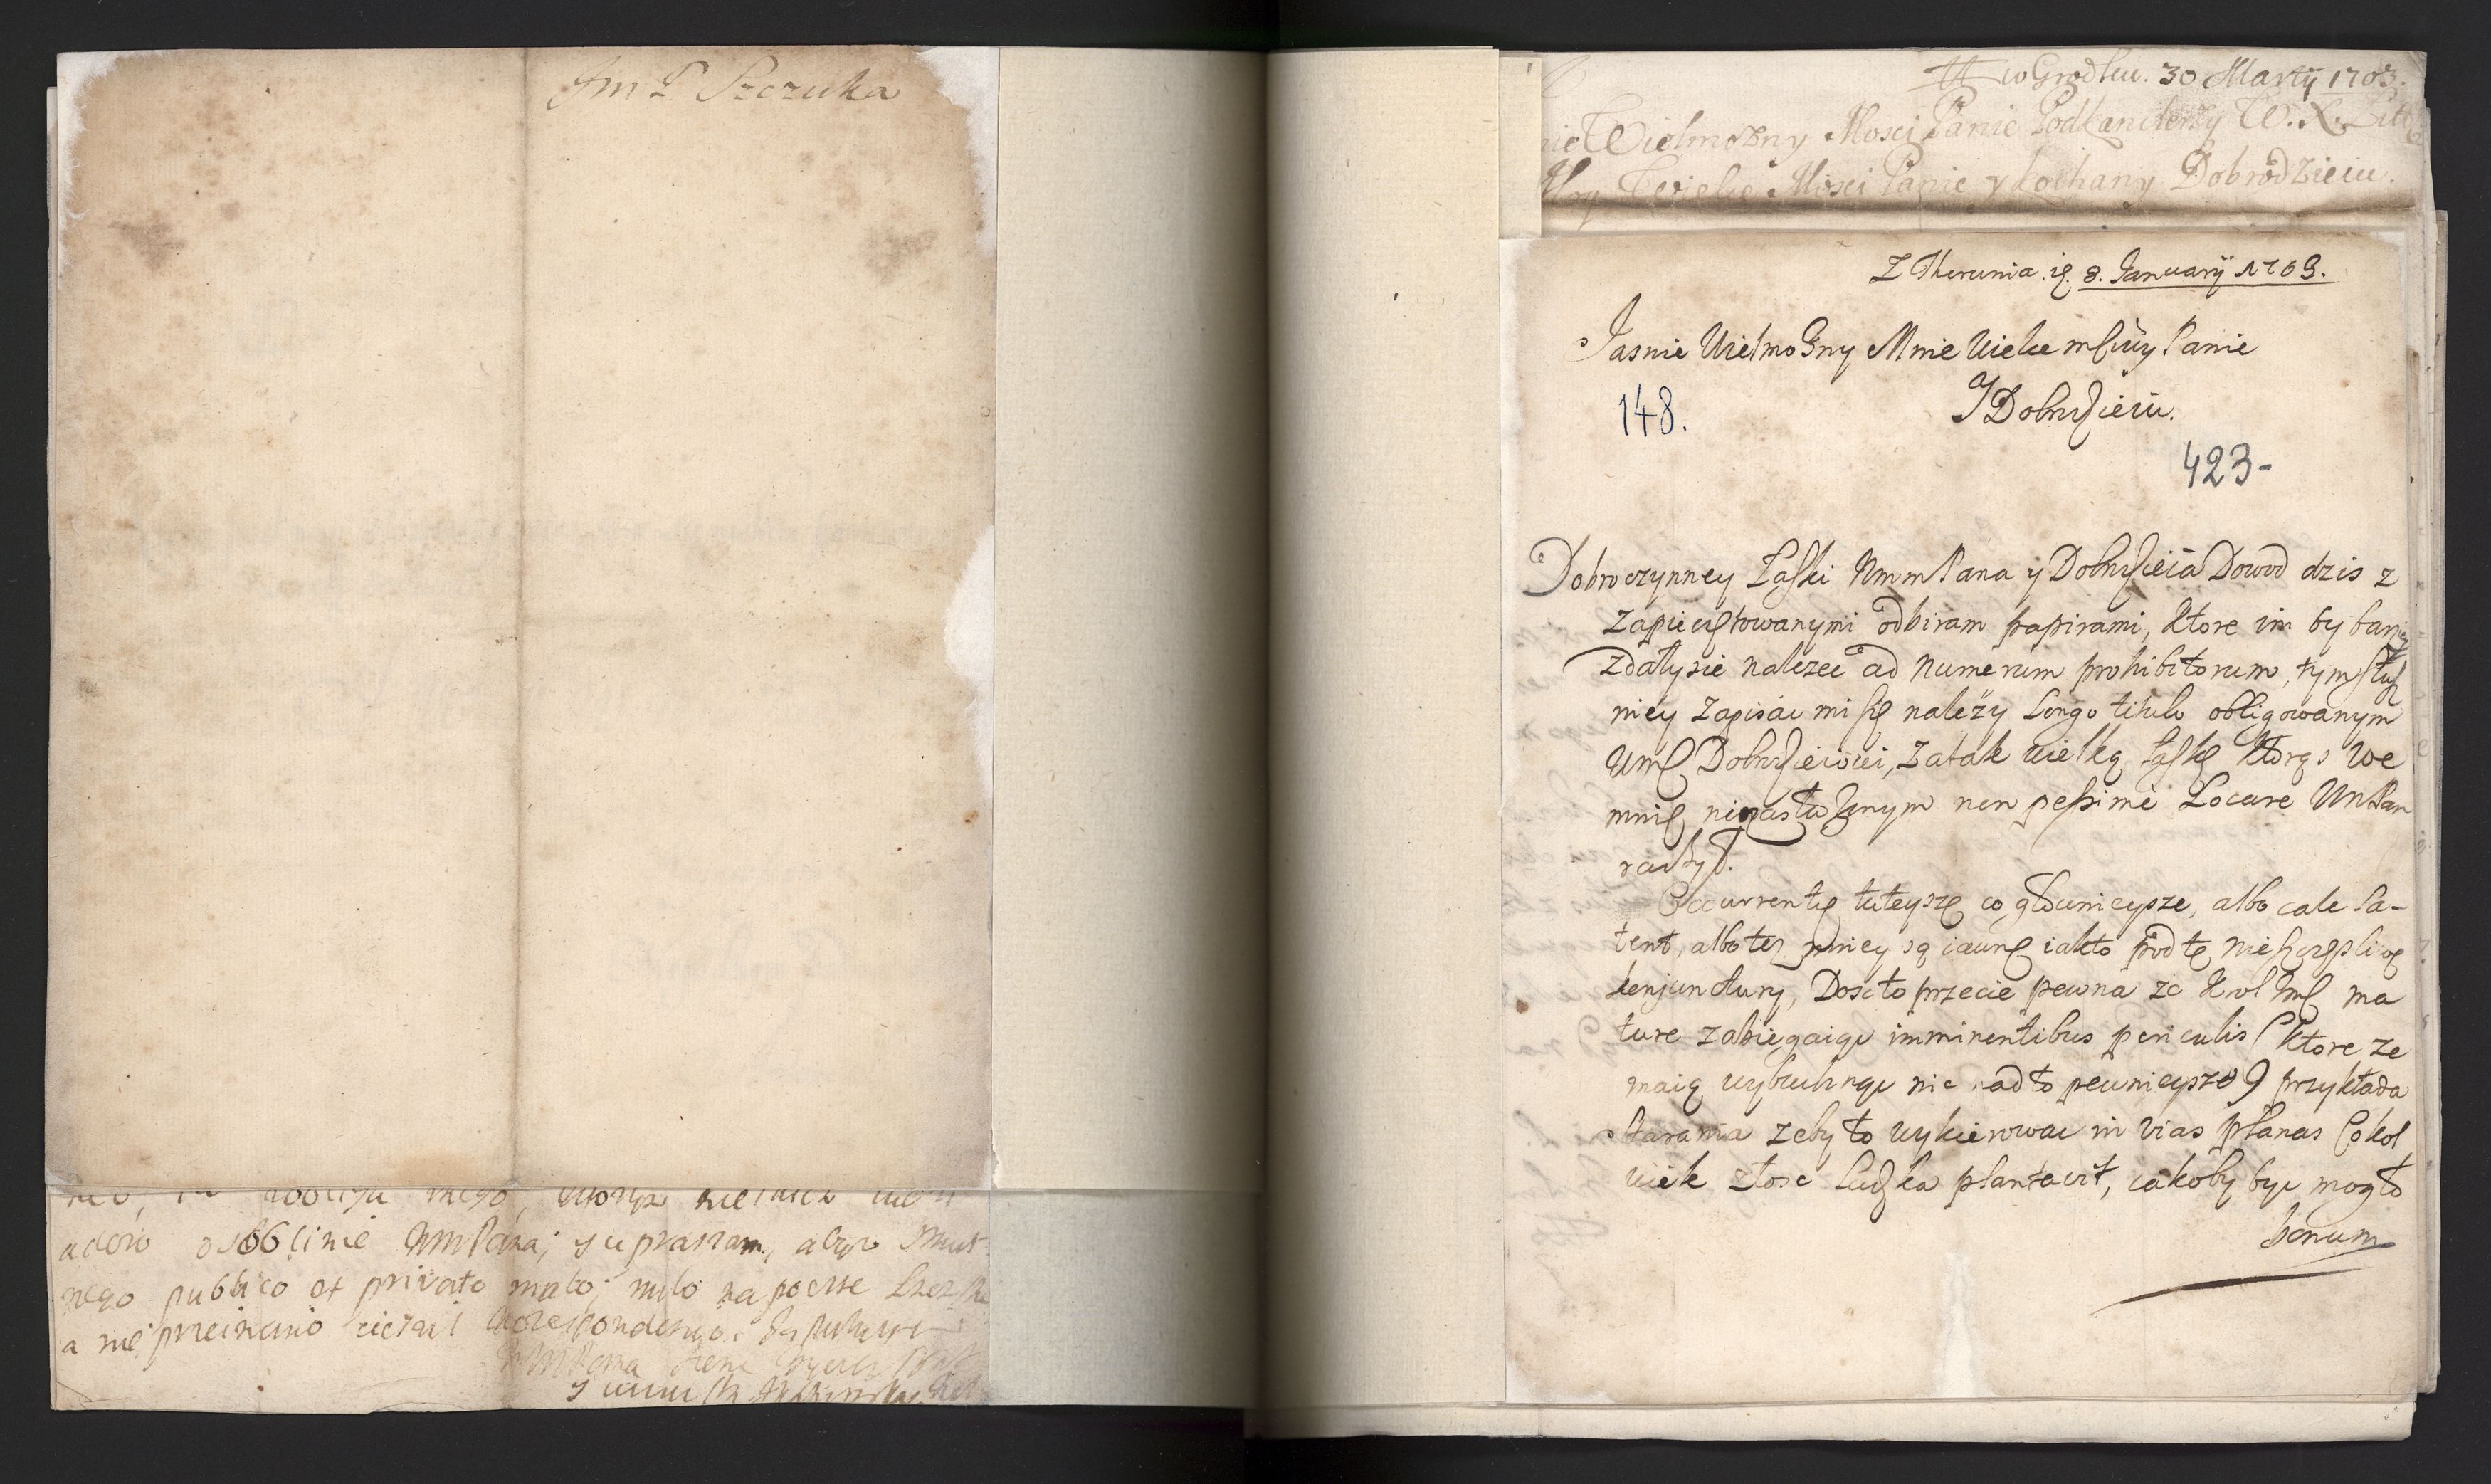 Jm P Szczuka
adoro osobliwie WmPana; y upraszam, abyś
nego publico et privato malo; milo na poczte
a nie przeinano
WmPana
w Grodku. 30 Martÿ 1703.
Wielmozny Mosci Panie Podkanclerzy W. X. Litt
Moy Wielce Mosci Panie y kochany Dobrodzieiu.
Z Thorunia. 8. Januarÿ 1703.
Jasnie Wielmozny Mnie Wielce mściwy Panie
J Dobrodzieiu.
148.
423-
Dobroczynney Łaski WmmPana ÿ Dobrodzieia Dowod dzis z
zapieczętowanymi odbiram papirami, ktore im by bardziey
zdały sie nalezec ad numerum prohibitorum, tym słusz
niey zapisac mi się nalezy longo titulo obligowanym
Wmś Dobrodzieiowi, za tak wielką łaskę ktorąs we
mnię niezasłuzonym non pessime Locare WmPan
raczył.
Occurrentię tuteyszę co głownieysze, albo cale la-
tent, albo tez mniey są iawnę iakto pod tę nieszczęsliwę
konjunctury, Dosc to przecie pewna ze Krol Jmś ma
ture zabiegaiąc imminentibus periculis (ktore ze
maią wybuchnąc nic nad to pewnieyszego) przykłada
starania zeby to wykierowac in vias planas Cokol
wiek złosc ludzka plantavit, iakoby byc mogło
bonum